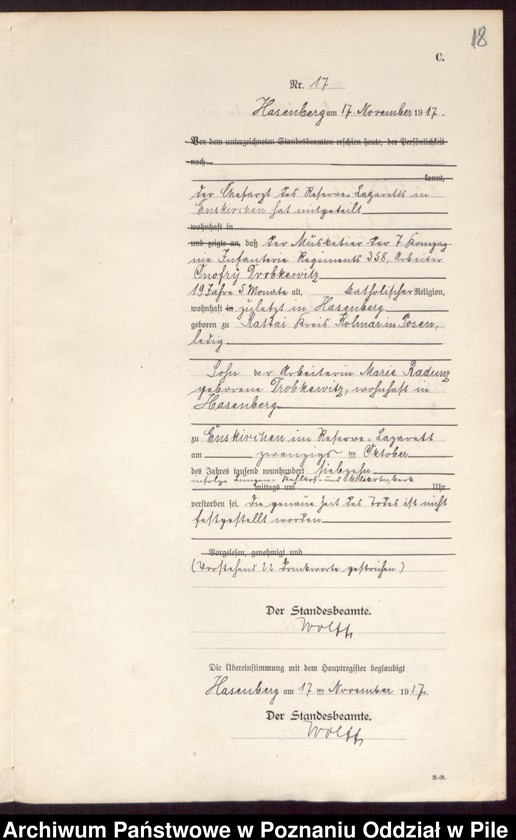 18
C.
Nr. 17
Hasenberg am 17. November 1917.
Vor dem unterzeichneten Standesbeamten erschien heute, der Persönlichkeit
nach
kannt,
der Chefarzt des Reserve-Lazaretts in
Euskirchen hat mitgeteilt
wohnhaft in
und zeigte an, daß der Musketier der 7. Kompag-
nie Infanterie Regiments 358, Arbeiter
Onofry Drobkewitz
19 Jahre 5 Monate alt, katholischer Religion,
wohnhaft in zuletzt in Hasenberg
geboren zu Rattai Kreis Kolmar in Posen,
ledig
Sohn der Arbeiterin Marie Radunz
geborene Drobkewitz, wohnhaft in
Hasenberg
zu Euskirchen im Reserve-Lazarett
am zwanzigs ten Oktober
des Jahres tausend neunhundert siebzehn
infolge Lungen- Kehlkopf- und
mittags um Uhr
verstorben sei. Die genaue Zeit des Todes ist nicht
festgestellt worden
Vorgelesen, genehmigt und
(Vorstehend 22 Druckworte gestrichen)
Der Standesbeamte.
Wolff
Die Übereinstimmung mit dem Hauptregister beglaubigt
Hasenberg am 17 ten November 1917.
Der Standesbeamte.
Wolff
Archiwum Państwowe w Poznaniu Oddział w Pile